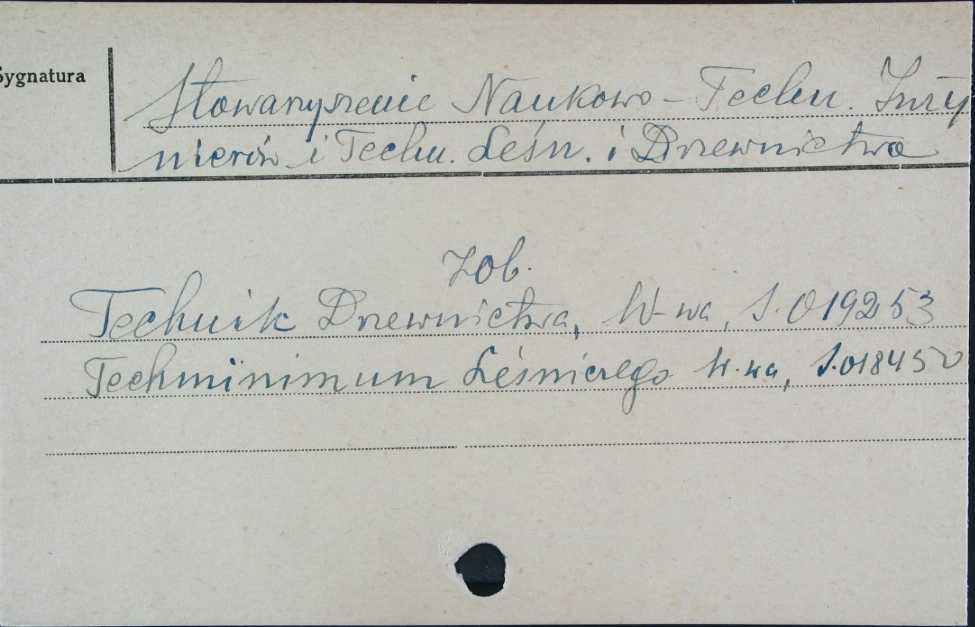 Sygnatura
Stowarzyszenie Naukowo-Techn. Inży
nierów i Techn. Leśn. i Drzewnictwa
Zob.
Technik Drzewnictwa, W-wa, S.019253
Techminimum Leśniczego W.wa, S.018450